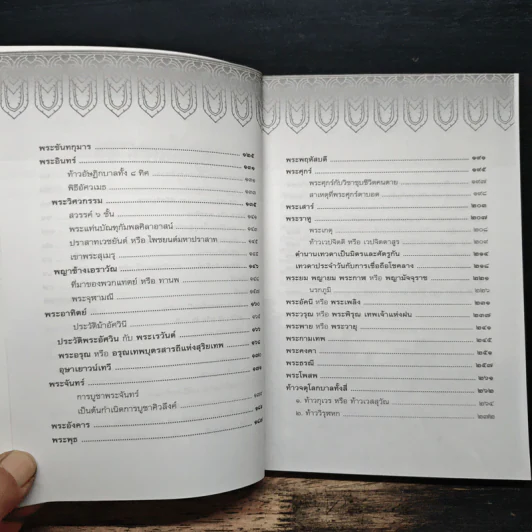 พระขันทกุมาร ๑๒๕
พระอินทร์ ๑๓๑
ท้าวอัษฎิกบาลทั้ง ๘ ทิศ
พิธีอัศวเมธ
พระวิศวกรรม ๑๓๕
สวรรค์ ๖ ชั้น
พระแท่นบัณฑุกัมพลศิลาอาสน์
ปราสาทเวชยันต์ หรือ ไพชยนต์มหาปราสาท
เขาพระสุเมรุ
พญาช้างเอราวัณ
ที่มาของพวกแทตย์ หรือ ทานพ
พระจุฬามณี
พระอาทิตย์
ประวัติม้าอัศวินี
ประวัติพระอัศวิน กับ พระเรวันต์
พระอรุณ หรือ อรุณเทพบุตรสารถีแห่งสุริยเทพ
อุษาเยาวน์เทวี
พระจันทร์
การบูชาพระจันทร์
เป็นต้นกำเนิดการบูชาศิวลึงค์
พระอังคาร
พระพุธ
พระพฤหัสบดี ๑๙๑
พระศุกร์ ๑๙๕
พระศุกร์กับวิชาชุบชีวิตคนตาย ๑๙๗
สาเหตุที่พระศุกร์ตาบอด ๑๙๘
พระเสาร์ ๒๐๓
พระราหู ๒๐๗
พระเกตุ ๒๐๘
ท้าวเวปจิตติ หรือ เวปจิตตาสูร ๒๐๙
ตำนานเทวดาเป็นมิตรและศัตรูกัน ๒๑๔
เทวดาประจำวันกับการเชื่อถือโชคลาง ๒๑๘
พระยม พญายม พระกาฬ หรือ พญามัจจุราช ๒๒๑
นรกภูมิ ๒๒๖
พระอัคนี หรือ พระเพลิง ๒๓๑
พระวรุณ หรือ พระพิรุณ เทพเจ้าแห่งฝน ๒๓๗
พระพาย หรือ พระวายุ ๒๔๑
พระกามเทพ ๒๔๕
พระคงคา ๒๕๑
พระธรณี ๒๕๗
พระโพสพ ๒๖๑
ท้าวจตุโลกบาลทั้งสี่ ๒๖๒
๑. ท้าวกุเวร หรือ ท้าวเวสสุวัณ ๒๖๔
๒. ท้าววิรุฬหก ๒๗๒